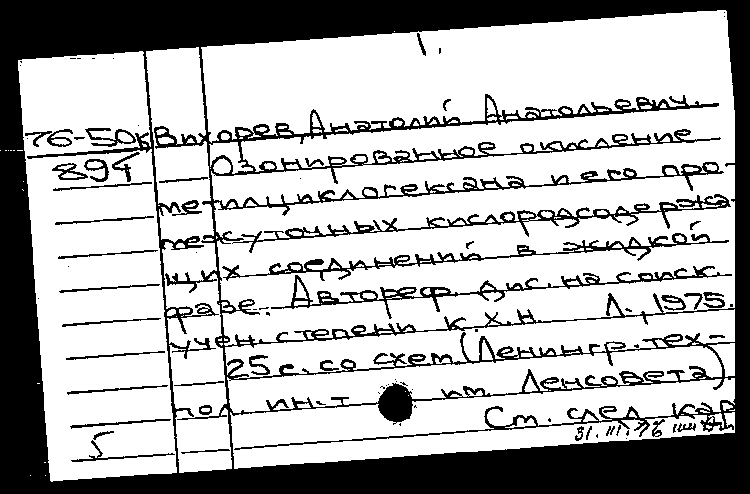 1.
76-50к Вихорев, Анатолий Анатольевич.
894 Озонированное окисление
метилциклогексана и его про-
межуточных кислородсодержа-
щих соединений в жидкой
фазе. Автореф. дис. на соиск.
учен. степени к.х.н. Л., 1975.
25 с. со схем. (Ленингр. тех-
нол. ин-т им. Ленсовета).
5 См. след. кар
31.III.76